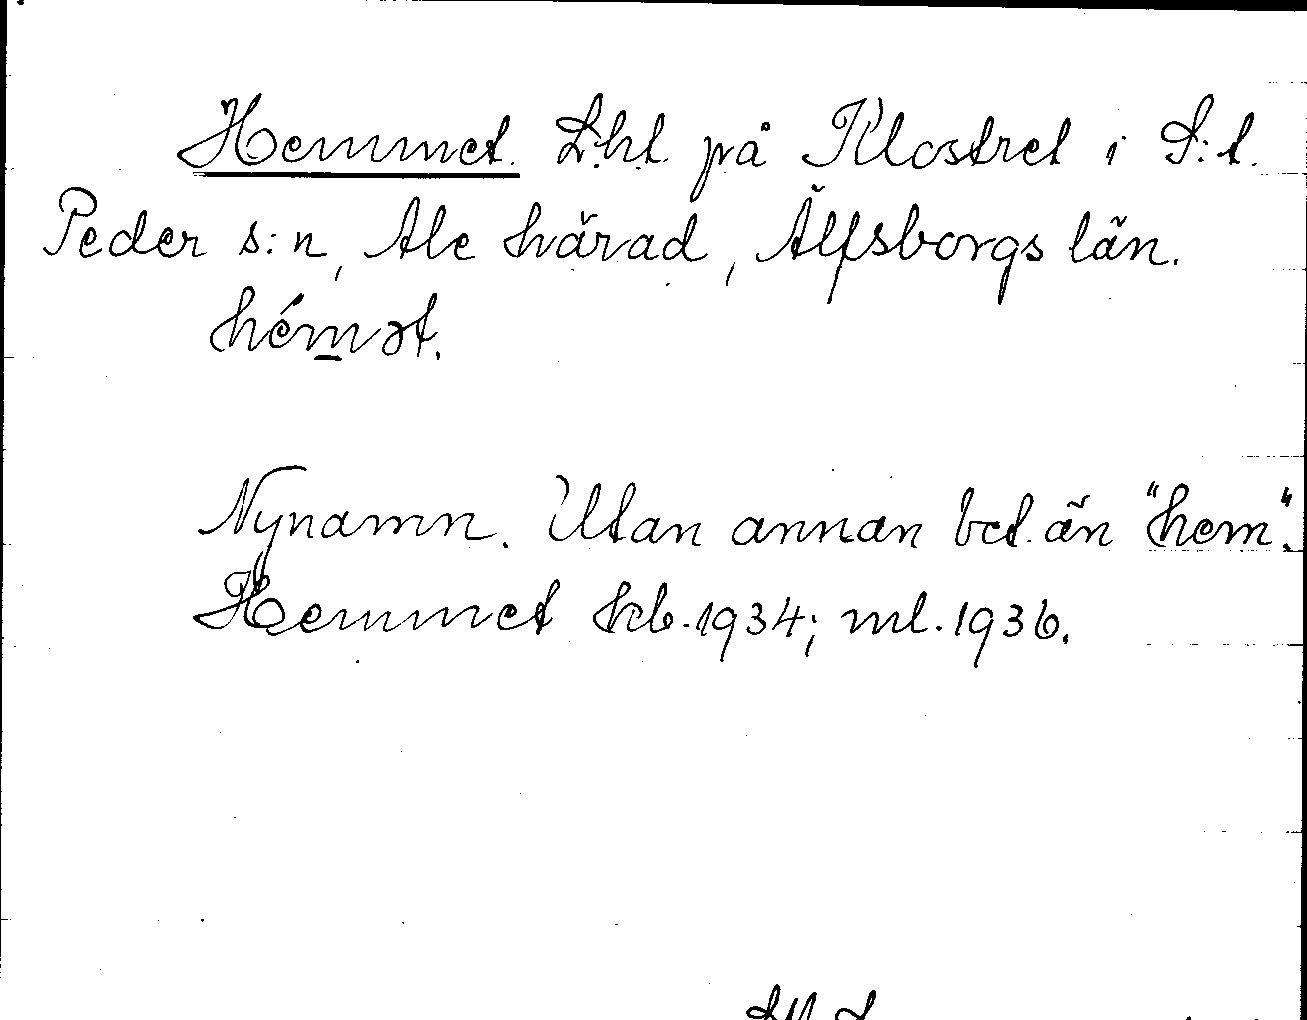 Hemmet. L:ht. på Klostret i S:t.
Peder s:n, Ale härad, Älfsborgs län.
hémət.
Nynamn. Utan annan bet. än "hem".
Hemmet kb. 1934; ml. 1936.